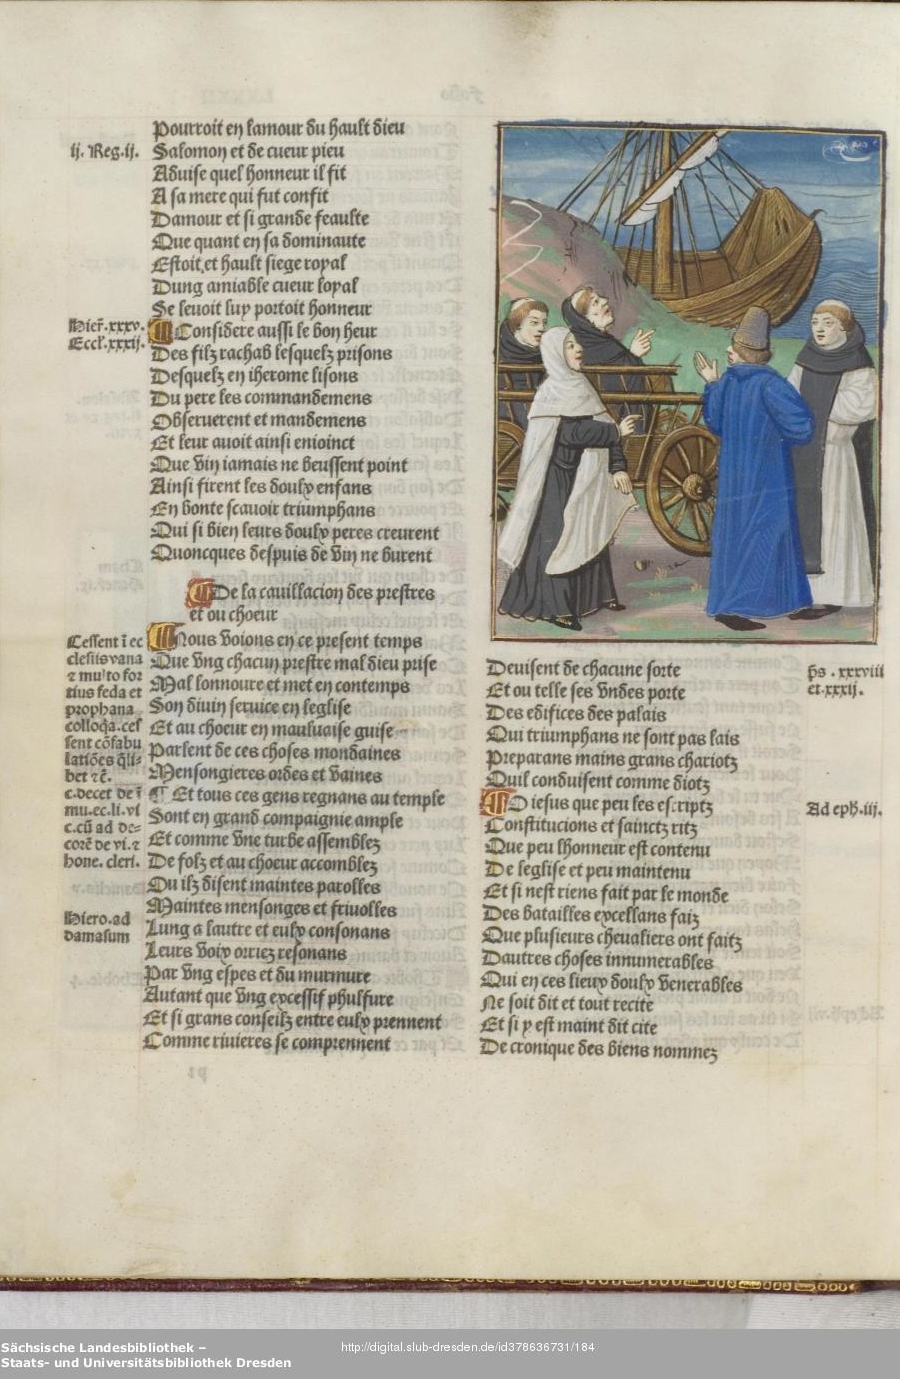 Pourroit en lamour du hault dieu
ij. Reg. ij.
Salomon et de cueur pieu
Aduise quel honneur il fit
A sa mere qui fut confit
Damour et si grande feaulte
Que quant en sa dominaute
Estoit, et hault siege royal
Dung amiable cueur loyal
Se leuoit luy portoit honneur
Hier̄. xxxv.
Eccl. xxxij.
¶ Considere aussi le bon heur
Des filz rachab lesquelz prisons
Desquelz en iherome lisons
Du pere les commandemens
Obseruerent et mandemens
Et leur auoit ainsi enioinct
Que vin iamais ne beussent point
Ainsi firent les doulx enfans
En bonte scauoir triumphans
Qui si bien leurs doulx peres creurent
Quoncques despuis de vin ne burent
¶ De la cauillacion des prestres
et ou choeur
Cessent ī ec
clesiis vana
⁊ multo for
tius feda et
prophana
colloq̄a. ces
sent cōfabu
latiōes q̄li-
bet ⁊ c̄.
c. decet de ī
mu. ec. li. vi
c. cū ad de=
corē de vi. ⁊
hone. cleri.
Hiero. ad
damasum
¶ Nous voions en ce present temps
Que vng chacun prestre mal dieu prise
Mal lonnoure et met en contemps
Son diuin seruice en leglise
Et au choeur en mauluaise guise
Parlent de ces choses mondaines
Mensongieres ordes et vaines
¶ Et tous ces gens regnans au temple
Sont en grand compaignie ample
Et comme vne turbe assemblez
De folz et au choeur accomblez
Ou ilz disent maintes parolles
Maintes mensonges et friuolles
Lung a lautre et eulx consonans
Leurs voix orriez resonans
Par vng espes et du murmure
Autant que vng excessif phulfure
Et si grans conseilz entre eulx prennent
Comme riuieres se comprennent
Deuisent de chacune sorte
Et ou telle ses vndes porte
Des edifices des palais
Qui triumphans ne sont pas lais
Preparans mains grans chariotz
Quil conduisent comme diotz
p̄s. xxxviii
et. xxxij.
¶ O iesus que peu les escriptz
Constitucions et sainctz ritz
Que peu lhonneur est contenu
De leglise et peu maintenu
Et si nest riens fait par le monde
Des batailles excellans faiz
Que plusieurs cheualiers ont faitz
Dautres choses innumerables
Qui en ces lieux doulx venerables
Ne soit dit et tout recite
Et si y est maint dit cite
De cronique des biens nommez
Ad eph. iij.
Sächsische Landesbibliothek –
Staats- und Universitätsbibliothek Dresden
http://digital.slub-dresden.de/id378636731/184